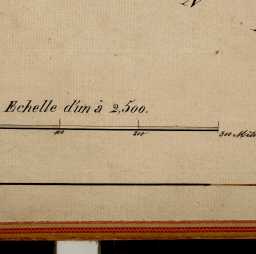 N
Echelle d'un à 2,500.
100 200 300 Mètr